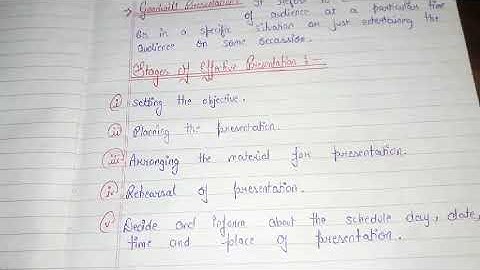 → Goodwill Presentation: It refers to
of audience at a particular time
or in a specific situation or just entertaining the
audience on some occassion.
Stages of Effective Presentation :-
(i) Setting the objective.
(ii) Planning the presentation.
(iii) Arranging the material for presentation.
(iv) Rehearsal of presentation.
(v) Decide and inform about the schedule day, date,
time and place of presentation.